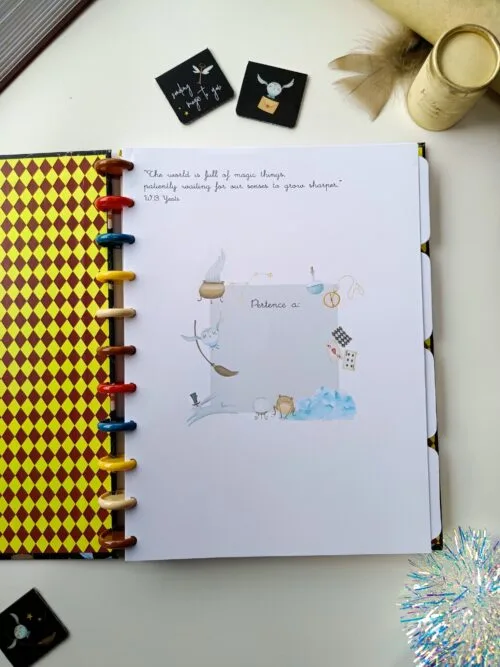 sending
magic to you
"The world is full of magic things,
patiently waiting for our senses to grow sharper."
W.B Yeats
Pertence a: